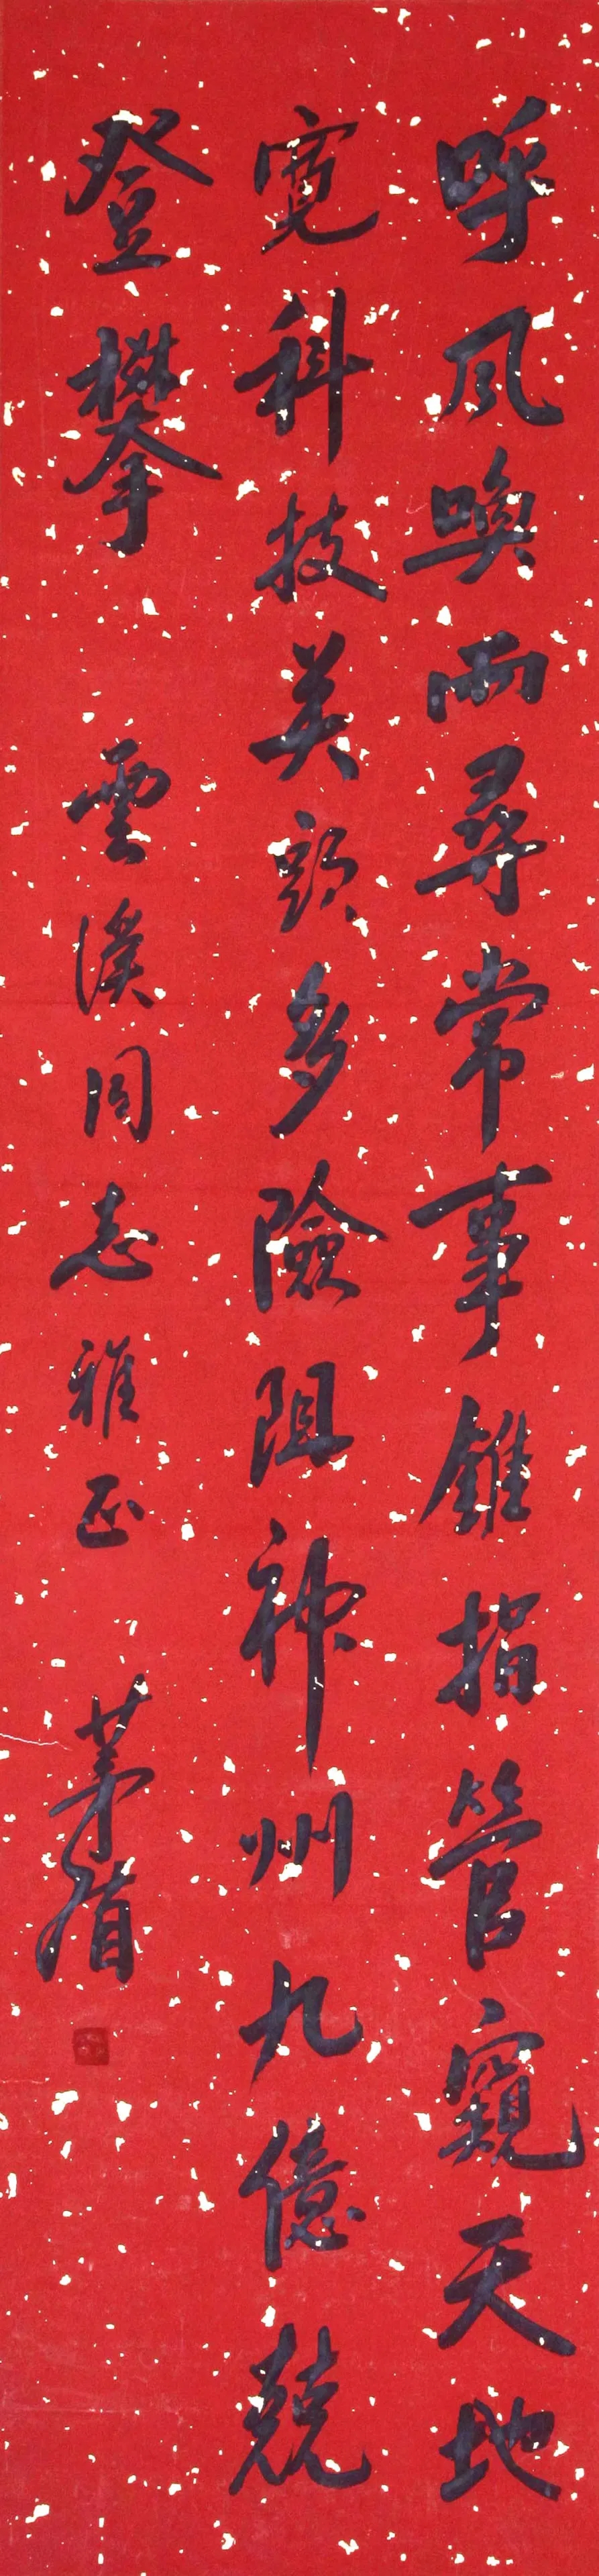 呼風喚雨尋常事錐指管窺天地
寬科技關頭多險阻神州九億競
登攀 雲漢同志雅正 茅盾